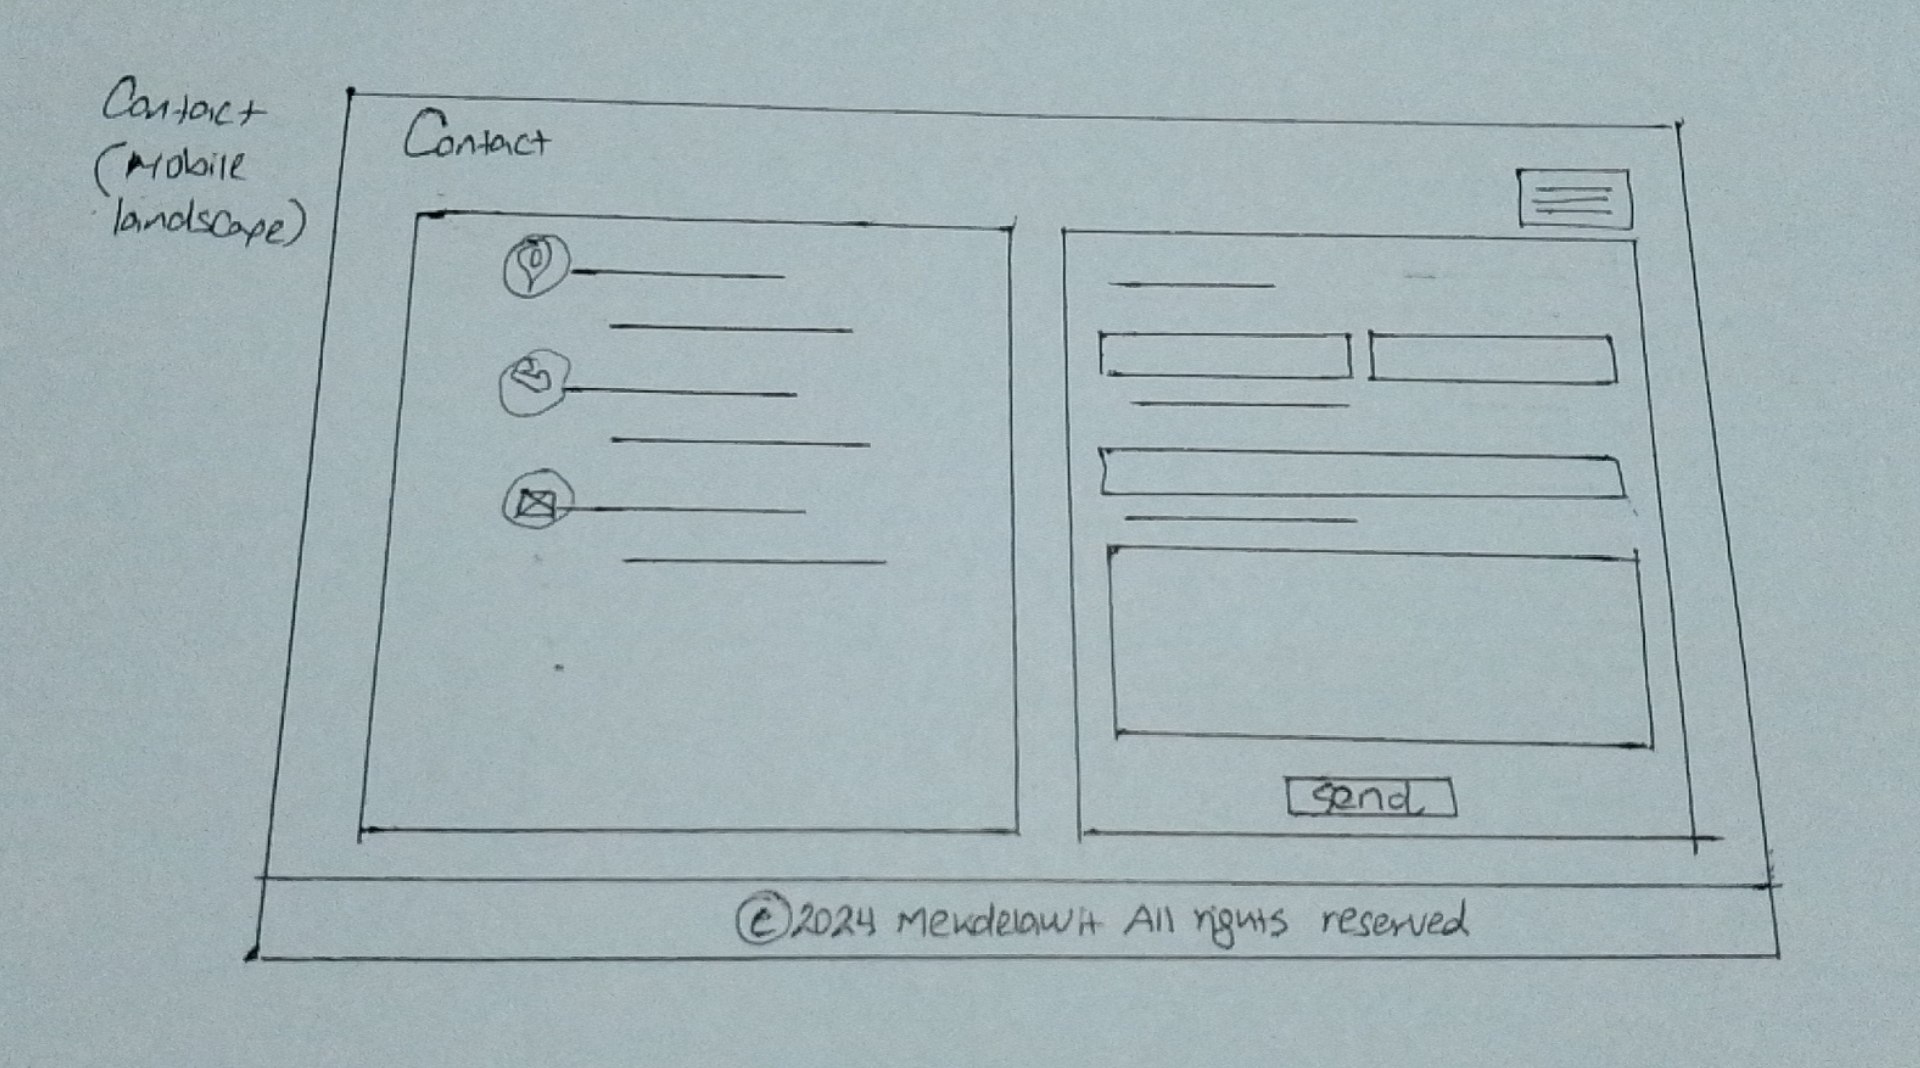 Contact
(Mobile
landscape)
Contact
send
©2024 Mekdelawit All rights reserved